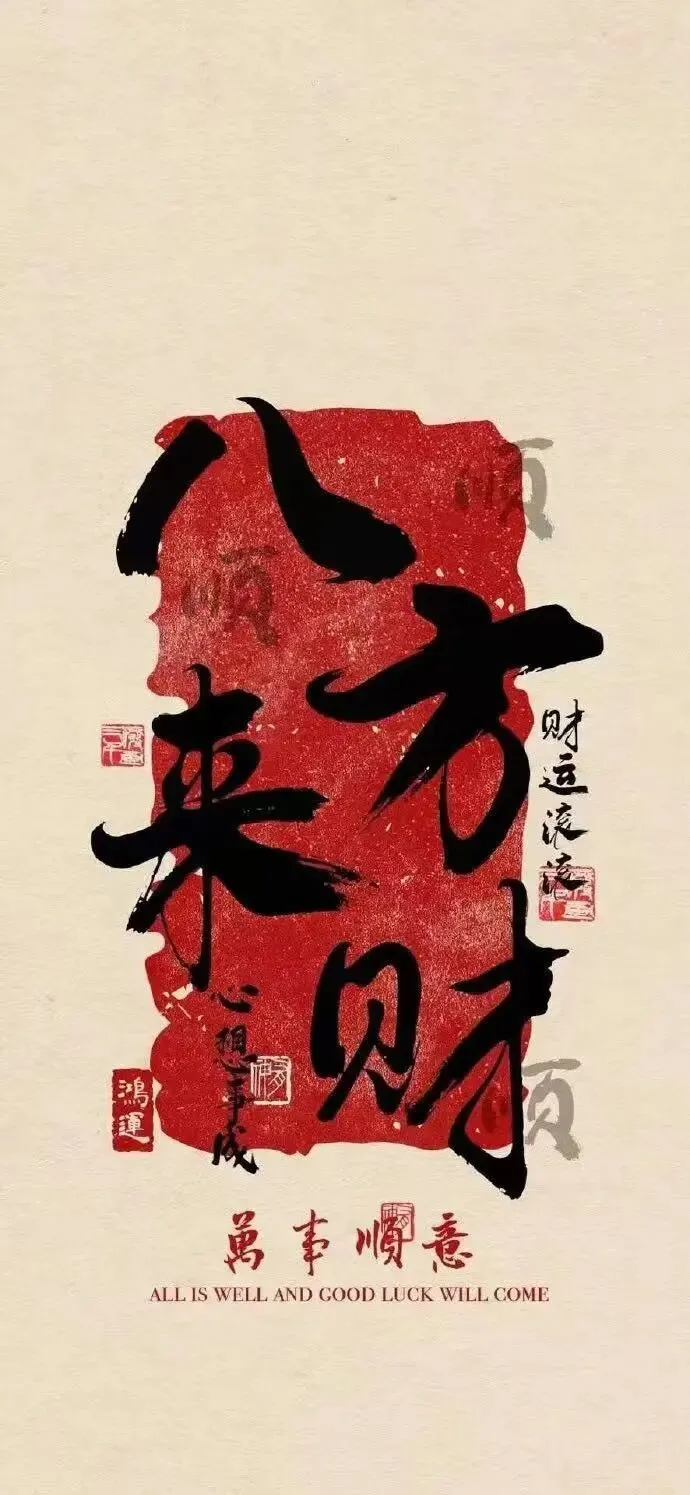 八方来财
顺
顺
财运滚滚
心想事成
顺
鸿運
萬事順意
ALL IS WELL AND GOOD LUCK WILL COME